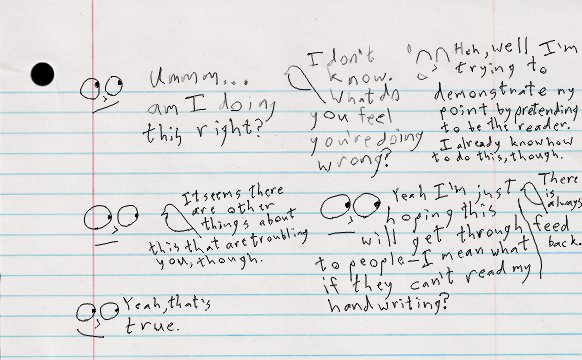 Ummm...
am I doing
this right?
I don't
know.
What do
you feel
you're doing
wrong?
Heh, well I'm
trying to
demonstrate my
point by pretending
to be the reader.
I already know how
to do this, though.
It seems there
are other
things about
this that are troubling
you, though.
Yeah I'm just
hoping this
will get through
to people—I mean what
if they can't read my
handwriting?
There
is
always
feed
back.
Yeah, that's
true.